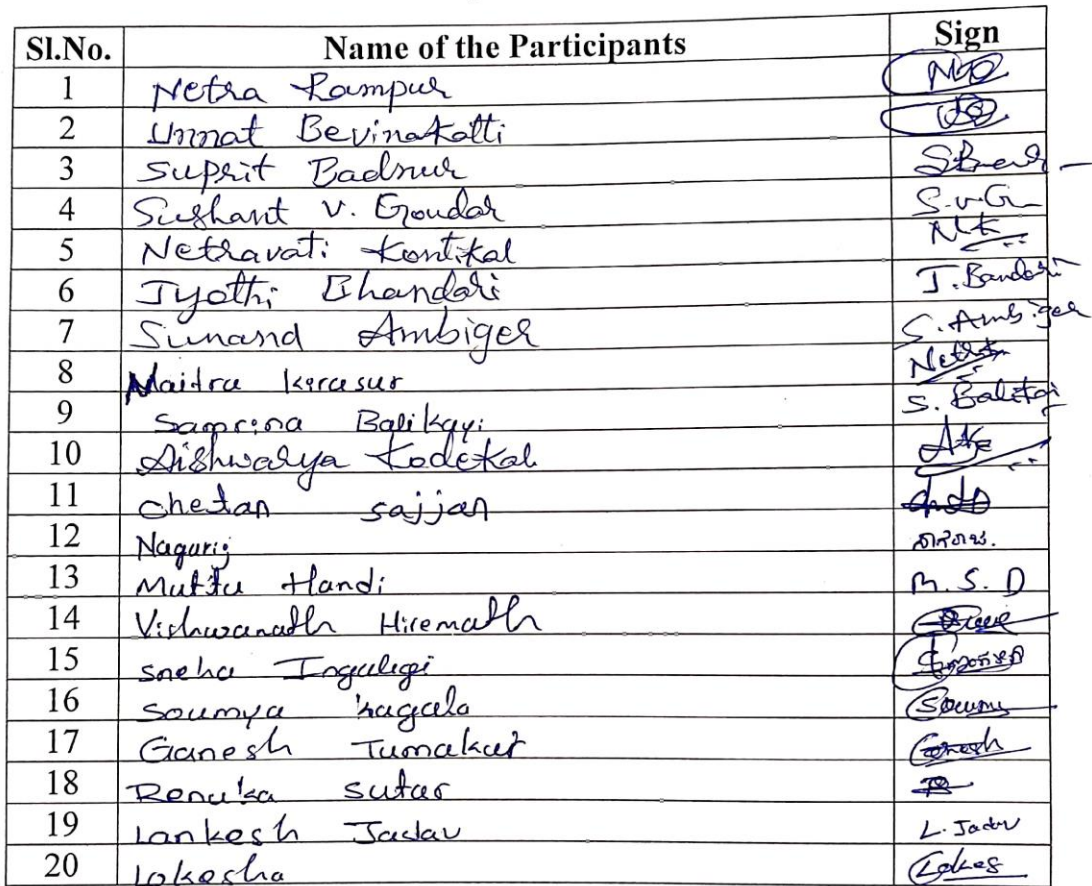 Sl.No. Name of the Participants Sign
1 Netra Rampur
2 Unnat Bevinakatti
3 Suprit Badnur
4 Sushant V. Goudar S.v.G
5 Netravati Kontikal NK
6 Jyothi Bhandari J. Bandari
7 Sunand Ambiger S. Ambiger
8 Maitra Kerasur
9 Samrina Balikayi
10 Aishwarya Kodekal
11 Chetan sajjan
12 Nagaraj
13 Muttu Handi M. S. D
14 Vishwanath Hiremath
15 sneha Ingalagi
16 Soumya kagala Soumy
17 Ganesh Tumakur Ganesh
18 Renuka sutar R
19 Lankesh Jadav L. Jadav
20 Lokesha Lokes